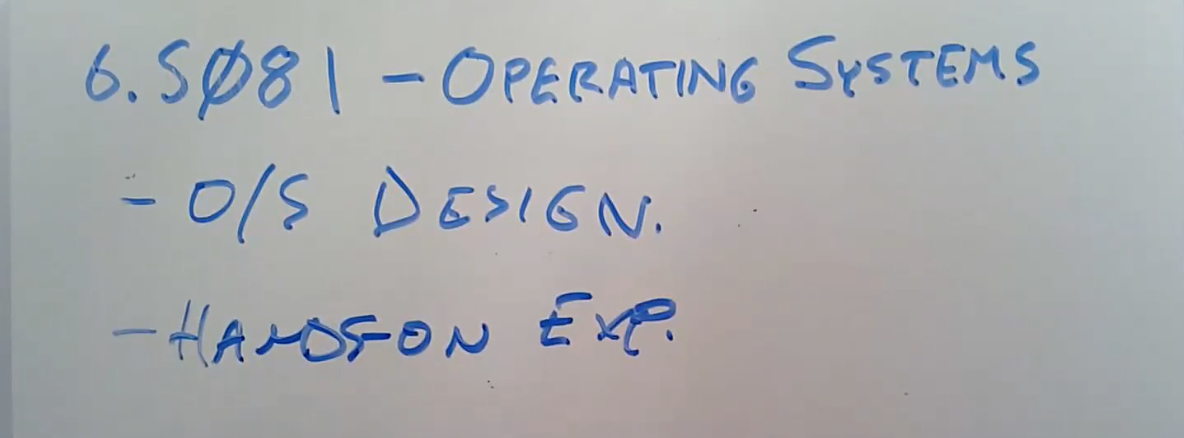 6.S081 - OPERATING SYSTEMS
- O/S DESIGN.
- HANDS-ON EXP.